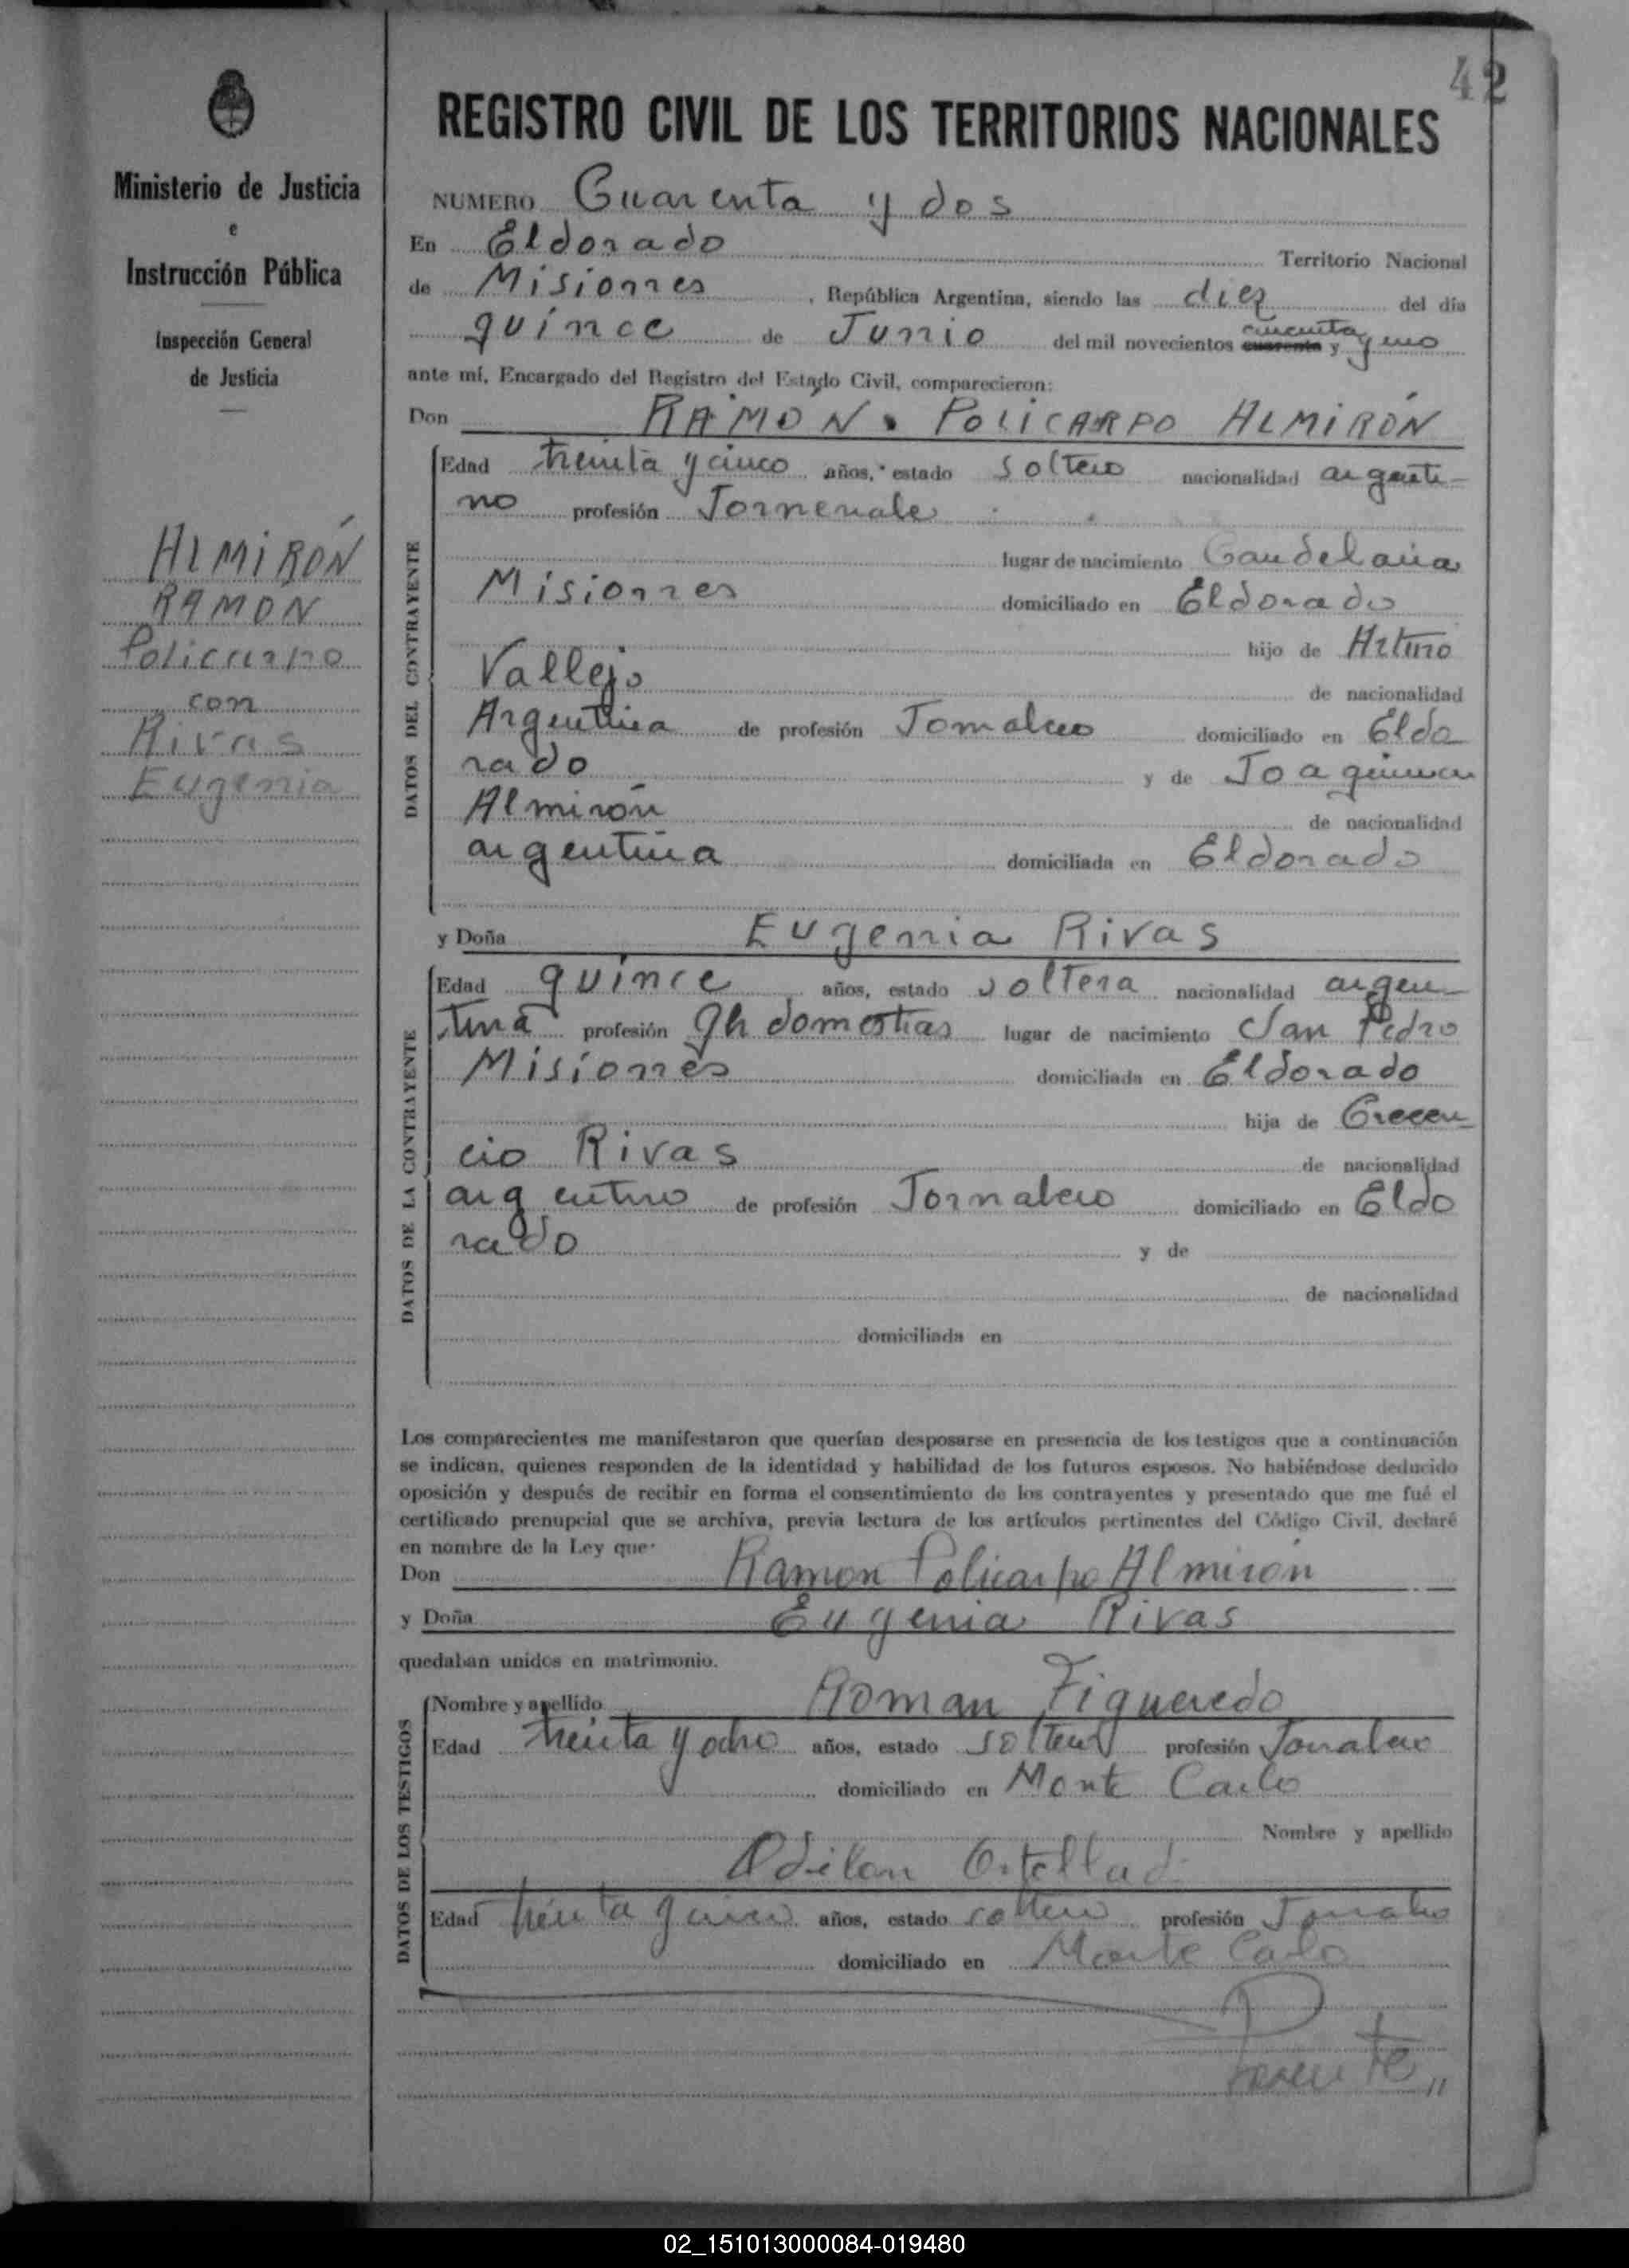 42
Ministerio de Justicia
e
Instrucción Pública
Inspección General
de Justicia
ALMIRÓN
RAMON
Policarpo
con
Rivas
Eugenia
REGISTRO CIVIL DE LOS TERRITORIOS NACIONALES
NUMERO Cuarenta y dos
En Eldorado Territorio Nacional
de Misiones, República Argentina, siendo las diez del día
quince de Junio del mil novecientos cuarenta y cincuenta y uno
ante mí, Encargado del Registro del Estado Civil, comparecieron:
Don RAMON. POLICARPO ALMIRÓN
DATOS DEL CONTRAYENTE
Edad treinta y cinco años, estado soltero nacionalidad argenti-
no profesión
lugar de nacimiento Candelaria
Misiones domiciliado en Eldorado
hijo de Arturo
Vallejo de nacionalidad
Argentina de profesión domiciliado en Eldo
rado y de Joaquina
Almirón de nacionalidad
argentina domiciliada en Eldorado
y Doña Eugenia Rivas
DATOS DE LA CONTRAYENTE
Edad quince años, estado soltera nacionalidad argen-
tina profesión Qh domesticas lugar de nacimiento San Pedro
Misiones domiciliada en Eldorado
hija de Crecen-
cio Rivas de nacionalidad
argentino de profesión Jornalero domiciliado en Eldo
rado y de
de nacionalidad
domiciliada en
Los comparecientes me manifestaron que querían desposarse en presencia de los testigos que a continuación
se indican, quienes responden de la identidad y habilidad de los futuros esposos. No habiéndose deducido
oposición y después de recibir en forma el consentimiento de los contrayentes y presentado que me fué el
certificado prenupcial que se archiva, previa lectura de los artículos pertinentes del Código Civil, declaré
en nombre de la Ley que:
Don Ramon Policarpo Almirón
y Doña Eugenia Rivas
quedaban unidos en matrimonio.
DATOS DE LOS TESTIGOS
Nombre y apellido Roman Figueredo
Edad treinta y ocho años, estado soltero profesión Jornalero
domiciliado en Monte Carlo
Nombre y apellido
Odilon
Edad treinta y cinco años, estado soltero profesión Jornalero
domiciliado en Monte Carlo
02_151013000084-019480